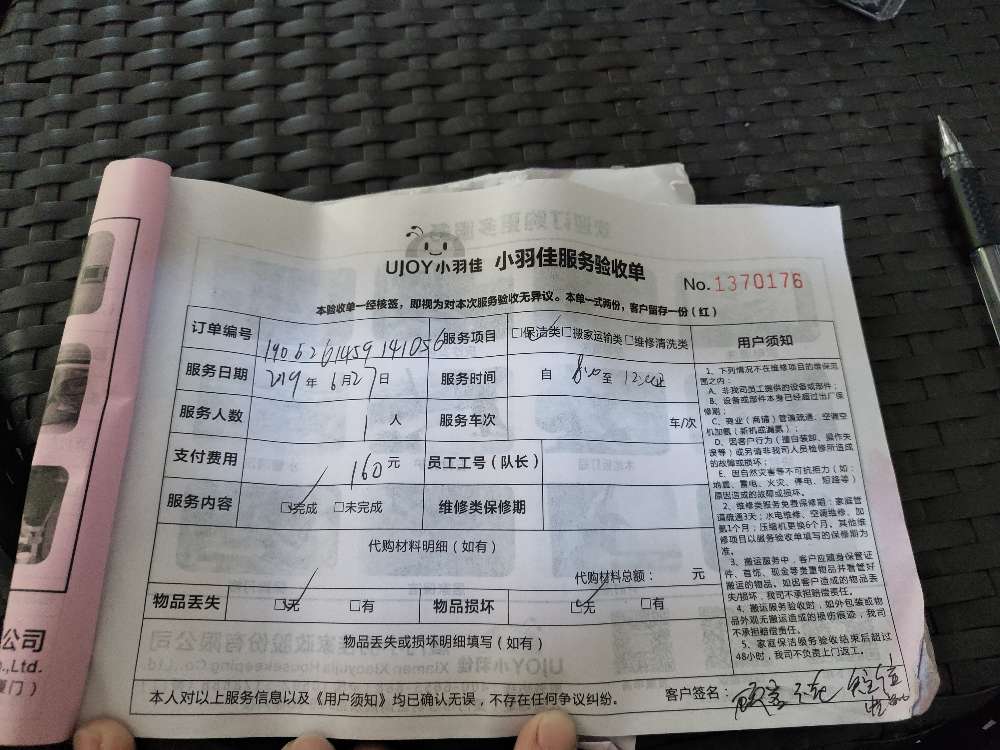 UJOY小羽佳 小羽佳服务验收单
No.1370176
本验收单一经核签，即视为对本次服务验收无异议。本单一式两份，客户留存一份（红）
订单编号 1905261459141056 服务项目 □保洁类□搬家运输类□维修清洗类
服务日期 219年6月27日 服务时间 自 8:00至 12:00
服务人数 1人 服务车次 车/次
支付费用 160元 员工工号（队长）
服务内容 □完成 □未完成 维修类保修期
代购材料明细（如有）
代购材料总额： 元
物品丢失 □无 □有 物品损坏 □无 □有
物品丢失或损坏明细填写（如有）
本人对以上服务信息以及《用户须知》均已确认无误，不存在任何争议纠纷。
客户签名：
用户须知
1、下列情况不在维修项目的维保范
围之内：
A、非我司员工提供的设备或部件；
B、设备或部件本身已经超过出厂保
修期；
C、商业（商铺）管道疏通、空调空
机加氟（新机或漏氟）；
D、因客户行为（擅自装卸、操作失
误等）或另请非我司人员检修所造成
的故障或损坏；
E、因自然灾害等不可抗拒力（如：
地震、雷电、火灾、停电、短路等）
原因造成的故障或损坏。
2、维修类服务免费保修期：家庭管
道疏通3天；水电维修、空调维修、加
氟1个月；压缩机更换6个月。其他维
修项目以服务验收单填写的保修期为
准。
3、搬运服务中，客户应随身保管证
件、首饰、现金等贵重物品并看管好
搬运的物品。如因客户造成的物品丢
失/损坏，我司不承担赔偿责任。
4、搬运服务验收时，如外包装或物
品外观无搬运造成的损伤痕迹，我司
不承担赔偿责任。
5、家庭保洁服务验收结束后超过
48小时，我司不负责上门返工。
公司
., Ltd.
厦门）